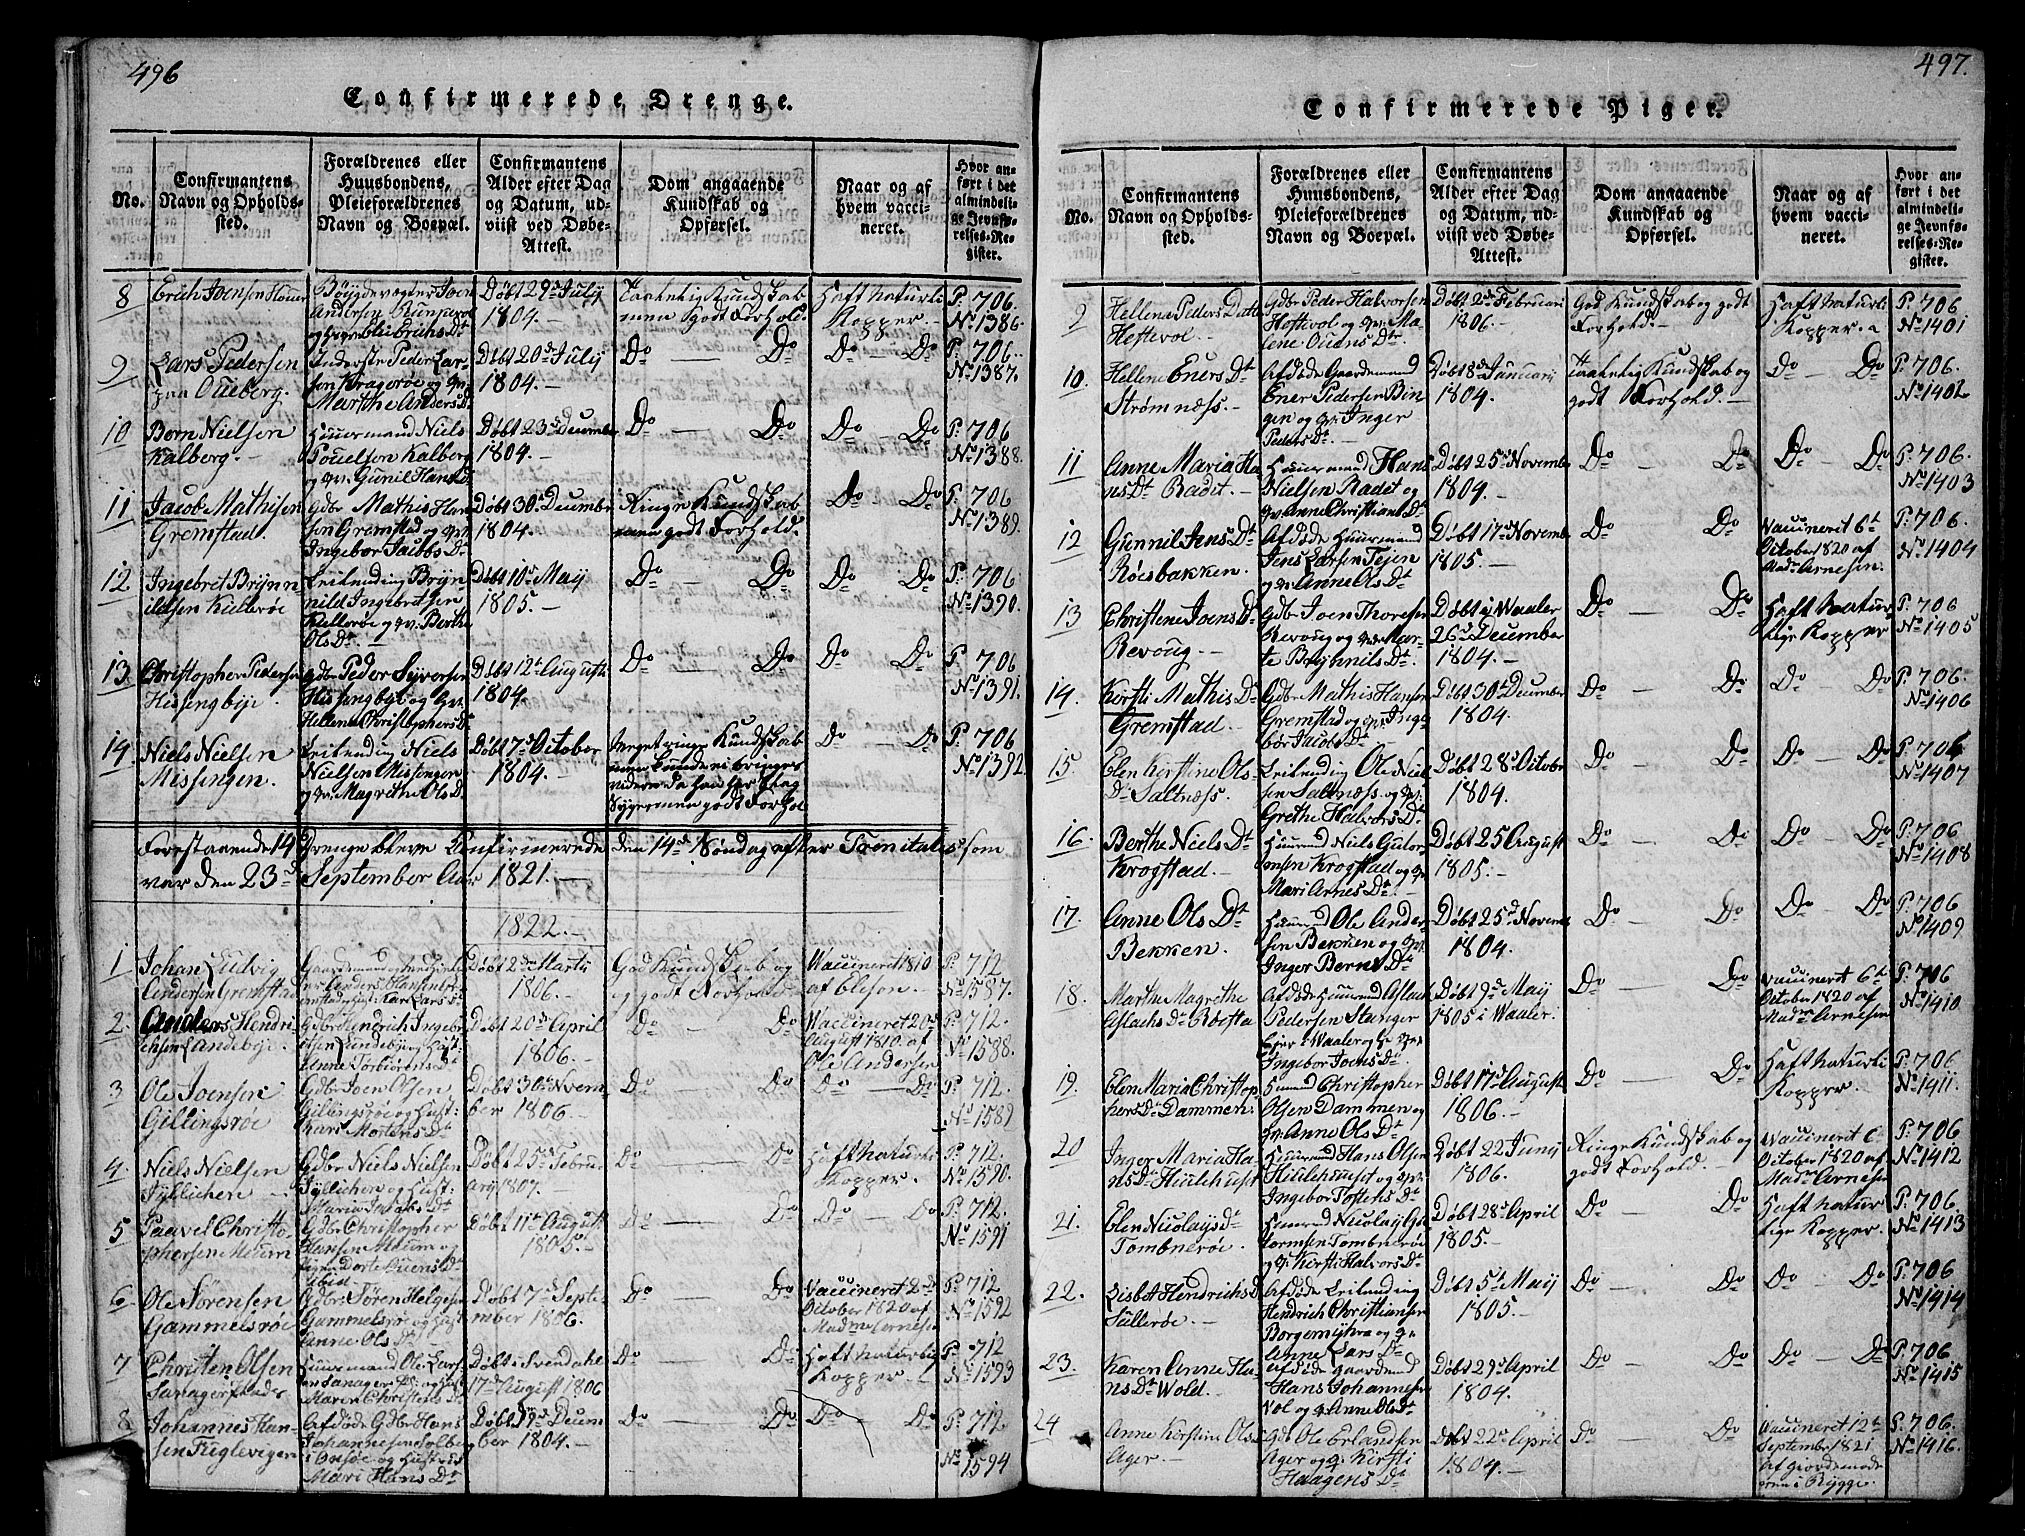 496
Confirmerede Drenge.
No.
Confirmantens Navn og Opholdssted.
Forældrenes eller Huusbondens, Pleieforældrenes Navn og Boepæl.
Confirmantens Alder efter Dag og Datum, udviist ved Døbe-Attest.
Dom angaaende Kundskab og Opførsel.
Naar og af hvem vaccineret.
Hvor anført i det almindelige Jevnførelses-Register.
8
Erich Joensen
Døbt 29d July 1804.
Taalelig Kundskab men godt Forhold.
Haft naturli Kopper.
P: 706. No 1386.
9
Lars Pedersen paa Oueberg.
Inderste Peder Larsen Kragerøe og qv. Marthe Anders Dt
Døbt 20d July 1804.
Do — Do
Do — Do
P: 706. No 1387.
10
Bern Nielsen Kalberg.
Huusmand Niels Pouelsen Kalberg og qv. Gunil Hans D.
Døbt 23d Decembr 1804.
Do — Do
Do — Do
P: 706 No 1388.
11
Jacob Mathisen Gremstad.
Gdbr Mathis Hansen Gremstad og qv. Ingebor Jacobs Dt
Døbt 30d Decembr 1804.
Ringe Kundskab men godt Forhold.
Do — Do
P: 706 No 1389.
12
Ingebret Brynnildsen Killerøe
Leilending Brynnild Ingebretsen Killerøe og qv. Berthe Ols Dt
Døbt 10d May 1805.
Do — Do
Do Do
P: 706 No 1390.
13
Christopher Pedersen Hissingbye.
Gdbr Peder Syversen Hissingbye og qv. Hellene Christophers Dt
Døbt 12t Augusti 1804.
Do — Do
Do Do
P: 706 No 1391.
14
Niels Nielsen Missingen.
Leilending Niels Nielsen Missingen og qv. Magrethe Ols D.
Døbt 7d October 1804.
Meget ringe Kundskab
godt Forhol
Do — Do
P: 706 No 1392
Forestaaende 14 Drenge bleve Confirmerede den 14d Søndag efter Trinitatis som
var den 23d September Aar 1821.
1822.
1
Johan Ludvig Andersen Gremstad
Døbt 2den Marty 1806.
God Kundskab og og godt Forhold
Vaccineret 1810 af Eleson.
P: 712. No 1587.
2
Anders Hendrichsen Landebye.
Gdbr Hendrich Ingebretsen Landebye og Hust: Anne Torbiørens D:
Døbt 20d April 1806.
Do — Do
Vaccineret 20d August 1810. af Ole Andersen
P: 712. No 1588.
3
Ole Joensen Gillingsrøe
Gdbr Joen Olsen Gillingsrøe og Hust: Kari Mortens Dt
Døbt 30d November 1806.
Do Do
Do — Do
P: 712. No 1589
4
Niels Nielsen Tyllichen
Gdbr Niels Nielsen Tyllichen og Hust: Maria Jacobs Dt
Døbt 25d Februari 1807.
Do — Do
Haft naturli Kopper.
P: 712. No 1590.
5
Paavel Christophersen Meum
Gdbr Christopher Hansen Meum og Dorte Ouens D ibid
Døbt 11t Augusti 1805.
Do — Do
Do — Do
P: 712. No 1591
6
Ole Sørensen Gammelsrøe
Gdbr Søren Helgesen Gammelsrøe og Hust Anne Ols Dt
Døbt 7d September 1806.
Do — Do
Vaccineret 2d October 1820 af Madme Arnesen
P: 712 No 1592
7
Christen Olsen
Huusmand Ole Larsen
Maren Christens D.
Døbt i Svendahl 17d August 1806
Do — Do
Haft naturlig Kopper.
P: 712 No 1593
8
Johannes Hansen Fuglevigen
Afdøde Gdbr Hans Johannesen Solberg i Onsøe og Hustrue Mari Hans Dt
Døbt 9d December 1804.
Do — Do
Do — Do
P: 712 No 1594
497.
Confirmerede Piger.
No.
Confirmantens Navn og Opholdssted.
Forældrenes eller Huusbondens, Pleieforældrenes Navn og Boepæl.
Confirmantens Alder efter Dag og Datum, udviist ved Døbe-Attest.
Dom angaaende Kundskab og Opførsel.
Naar og af hvem vaccineret.
Hvor anført i det almindelige Jevnførelses-Register.
9
Hellene Peders Datt Heftevol.
Gdbr Peder Halvorsen Heftevol og qv. Malene Ouens Dtr
Døbt 2d Februari 1806.
God Kundskab og godt Forhold.
Haft naturli Kopper.
P: 706 No 1401
10.
Hellene Eners Dt Strømness.
Afdøde Gaardmand Ener Pedersen Bingen og qv. Inger Peders Dt.
Døbt 8d Januari 1804.
Taalelig Kundskab og godt Forhold.
Do — Do
P: 706. No 1402
11
Anne Maria Hans Dt Radet.
Huusmand Hans Nielsen Radet og qv. Anne Christians Dt
Døbt 25d Novembr 1804.
Do — Do
Do — Do
P: 706. No 1403
12
Gunnil Jens Dt Røesbakken.
Afdøde Huusmand Jens Larsen Tejen og qv. Anne Ols Dt
Døbt 17d Novembr 1805.
Do Do
Vaccineret 6t October 1820 af Madm Arnesen.
P: 706. No 1404
13
Christene Joens D. Revoug.
Gdbr Joen Thoresen Revoug og qv. Marte Brynnils Dt
Døbt i Waaler 26d December 1804.
Do — Do
Haft naturlige Kopper
P: 706 No 1405
14.
Kersti Mathis Dt Gremstad.
Gdbr Mathis Hansen Gremstad og qv. Ingebor Jacobs Dt
Døbt 30d December 1804.
Do — Do
Do Do
P: 706. No 1406
15
Elen Kirstine Ols Dt Saltness.
Leilending Ole Nielsen Saltness og qv. Grethe Halvors Dt
Døbt 28d Octobr 1804.
Do — Do
Do — Do
P: 706 No 1407
16.
Berthe Niels Dt Krogstad.
Huusmd Niels Gulorsen Krogstad og qv. Mari Arnes Dt
Døbt 25 August 1805.
Do — Do
Do — Do
P: 706 No 1408
17.
Anne Ols Dt Bekken.
Huusmd Ole Andersen Bekken og qv. Inger Berns Dt
Døbt 25d Novembr 1804.
Do — Do
Do — Do
P: 706 No 1409
18.
Marthe Magrethe Aslachs Dt Roesta
Afdøde Huusmd Aslach Pedersen Stanger
i Waaler og qv. Ingebor Joens D.
Døbt 9d Maij 1805 i Waaler.
Do — Do
Vaccineret 6t October 1820 af Madm Arnesen
P: 706 No 1410.
19.
Elen Maria Christophers Dt Dammen.
Huusmd Christopher Olsen Dammen og qv. Anne Ols Dt
Døbt 17d August 1806.
Do — Do
Haft naturli Kopper.
P: 706. No 1411.
20
Inger Maria Hans Dt Huilehuset
Huusmd Hans Olsen Huilehuuset og qv. Ingebor Tostens Dt
Døbt 22 Junij 1806.
Ringe Kundskab og godt Forhold.
Vaccineret 6t October 1820 af Madm Arnesen
P: 706 No 1412
21.
Elen Nicolays Dt Tombnerøe.
Huusmd Nicolay Guttormsen Tombnerøe og qv. Kirsti Halvors Dt
Døbt 28d April 1805.
Do — Do
Haft naturlige Kopper.
P: 706 No 1413
22.
Lisbet Hendrichs D Sillerøe.
Afdøde Leilending Hendrich Christiansen Borgemyhra og qv Anne Lars D.
Døbt 5t Maij 1805.
Do — Do
Do — Do
P: 706 No 1414
23.
Karen Anne Hans Dt Wold.
Afdøde Gaardmd Hans Johannesen Vol og qv. Anne Ols Dt
Døbt 29d April 1804.
Do — Do
Do — Do
P: 706 No 1415
24
Anne Kirstine Ols D Ager.
Gdb Ole Erlandsen Ager og q. Kirsti Haagens Dt
Døbt 22d April 1804.
Do — Do
Vaccineret 12t September 1821 af Giordemoderen i Rygge.
P: 706. No 1416.